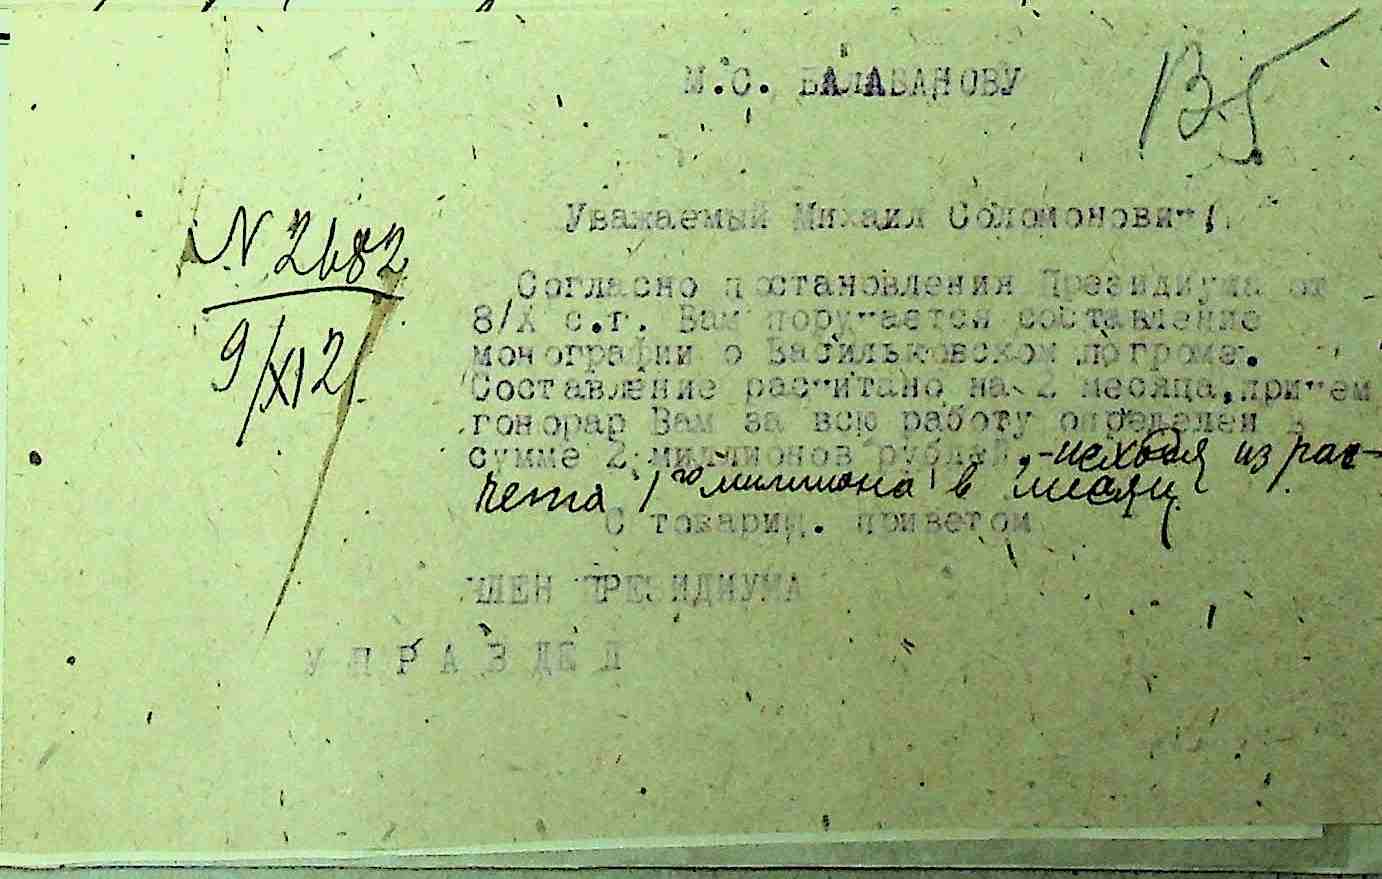 М.С. БАЛАБАНОВУ
135
Уважаемый Михаил Соломонович!
N 2682
9/XI 21.
Согласно постановления Президиума от
8/X с.г. Вам поручается составление
монографии о Васильковском погроме.
Составление расчитано на 2 месяца, причем
гонорар Вам за всю работу определен в
сумме 2 миллионов рублей, - исходя из рас-
чета 1го миллиона в месяц.
С товарищ. приветом
ЧЛЕН ПРЕЗИДИУМА
УПРАВДЕЛ